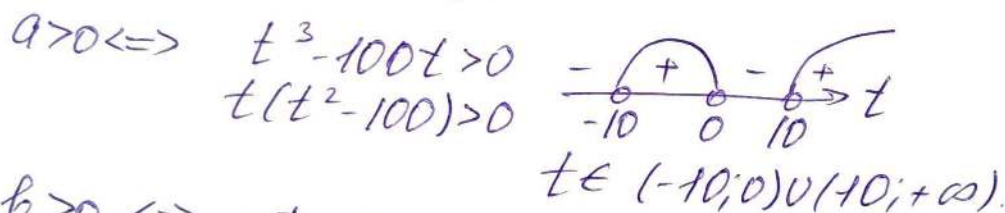 a>0 <=> t³-100t>0
t(t²-100)>0
- + - + t
-10 0 10
t∈ (-10;0)∪(10;+∞).
b>0 <=>